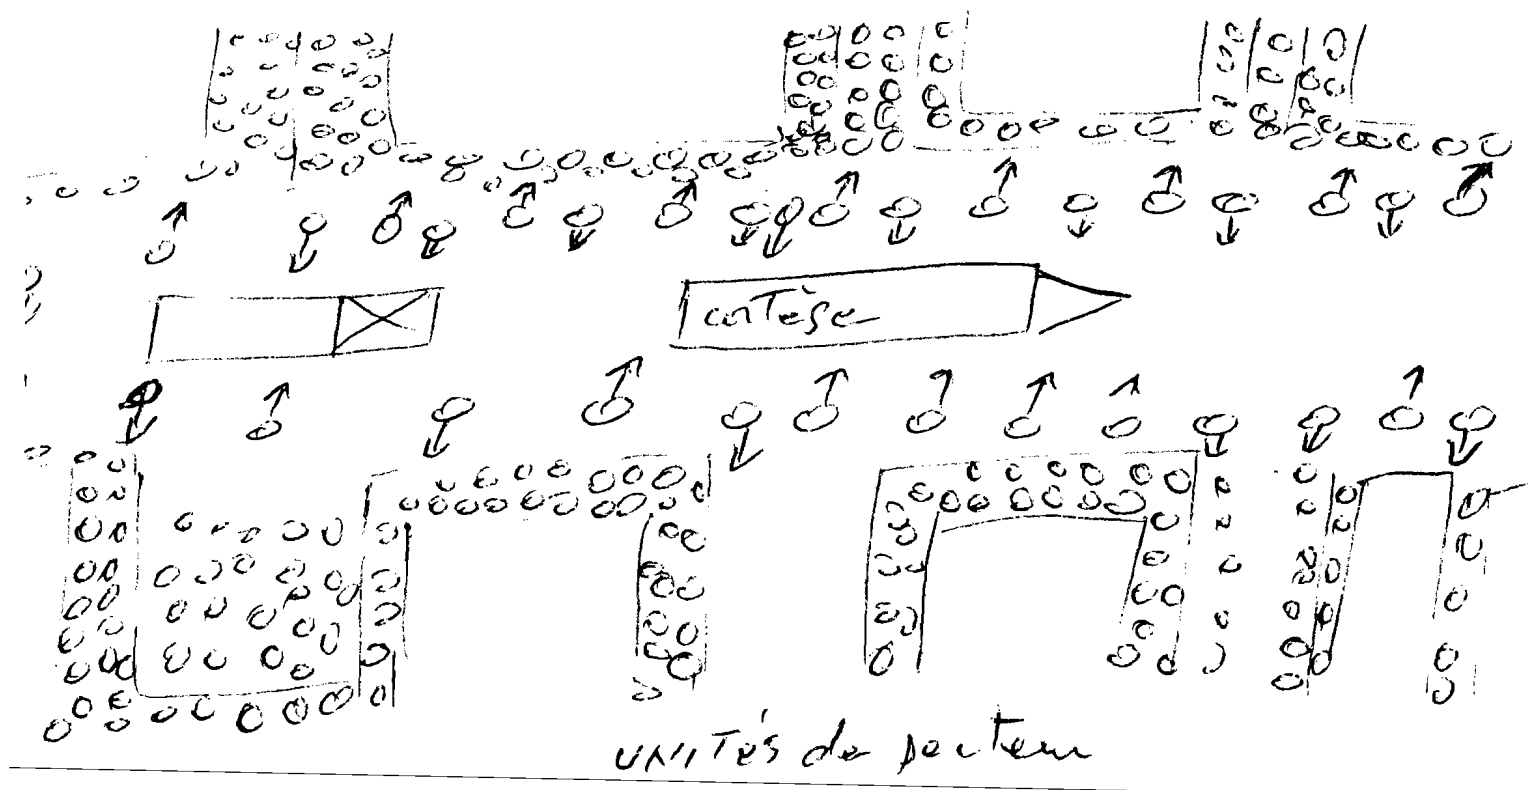 cortège
UNITÉS de secteur